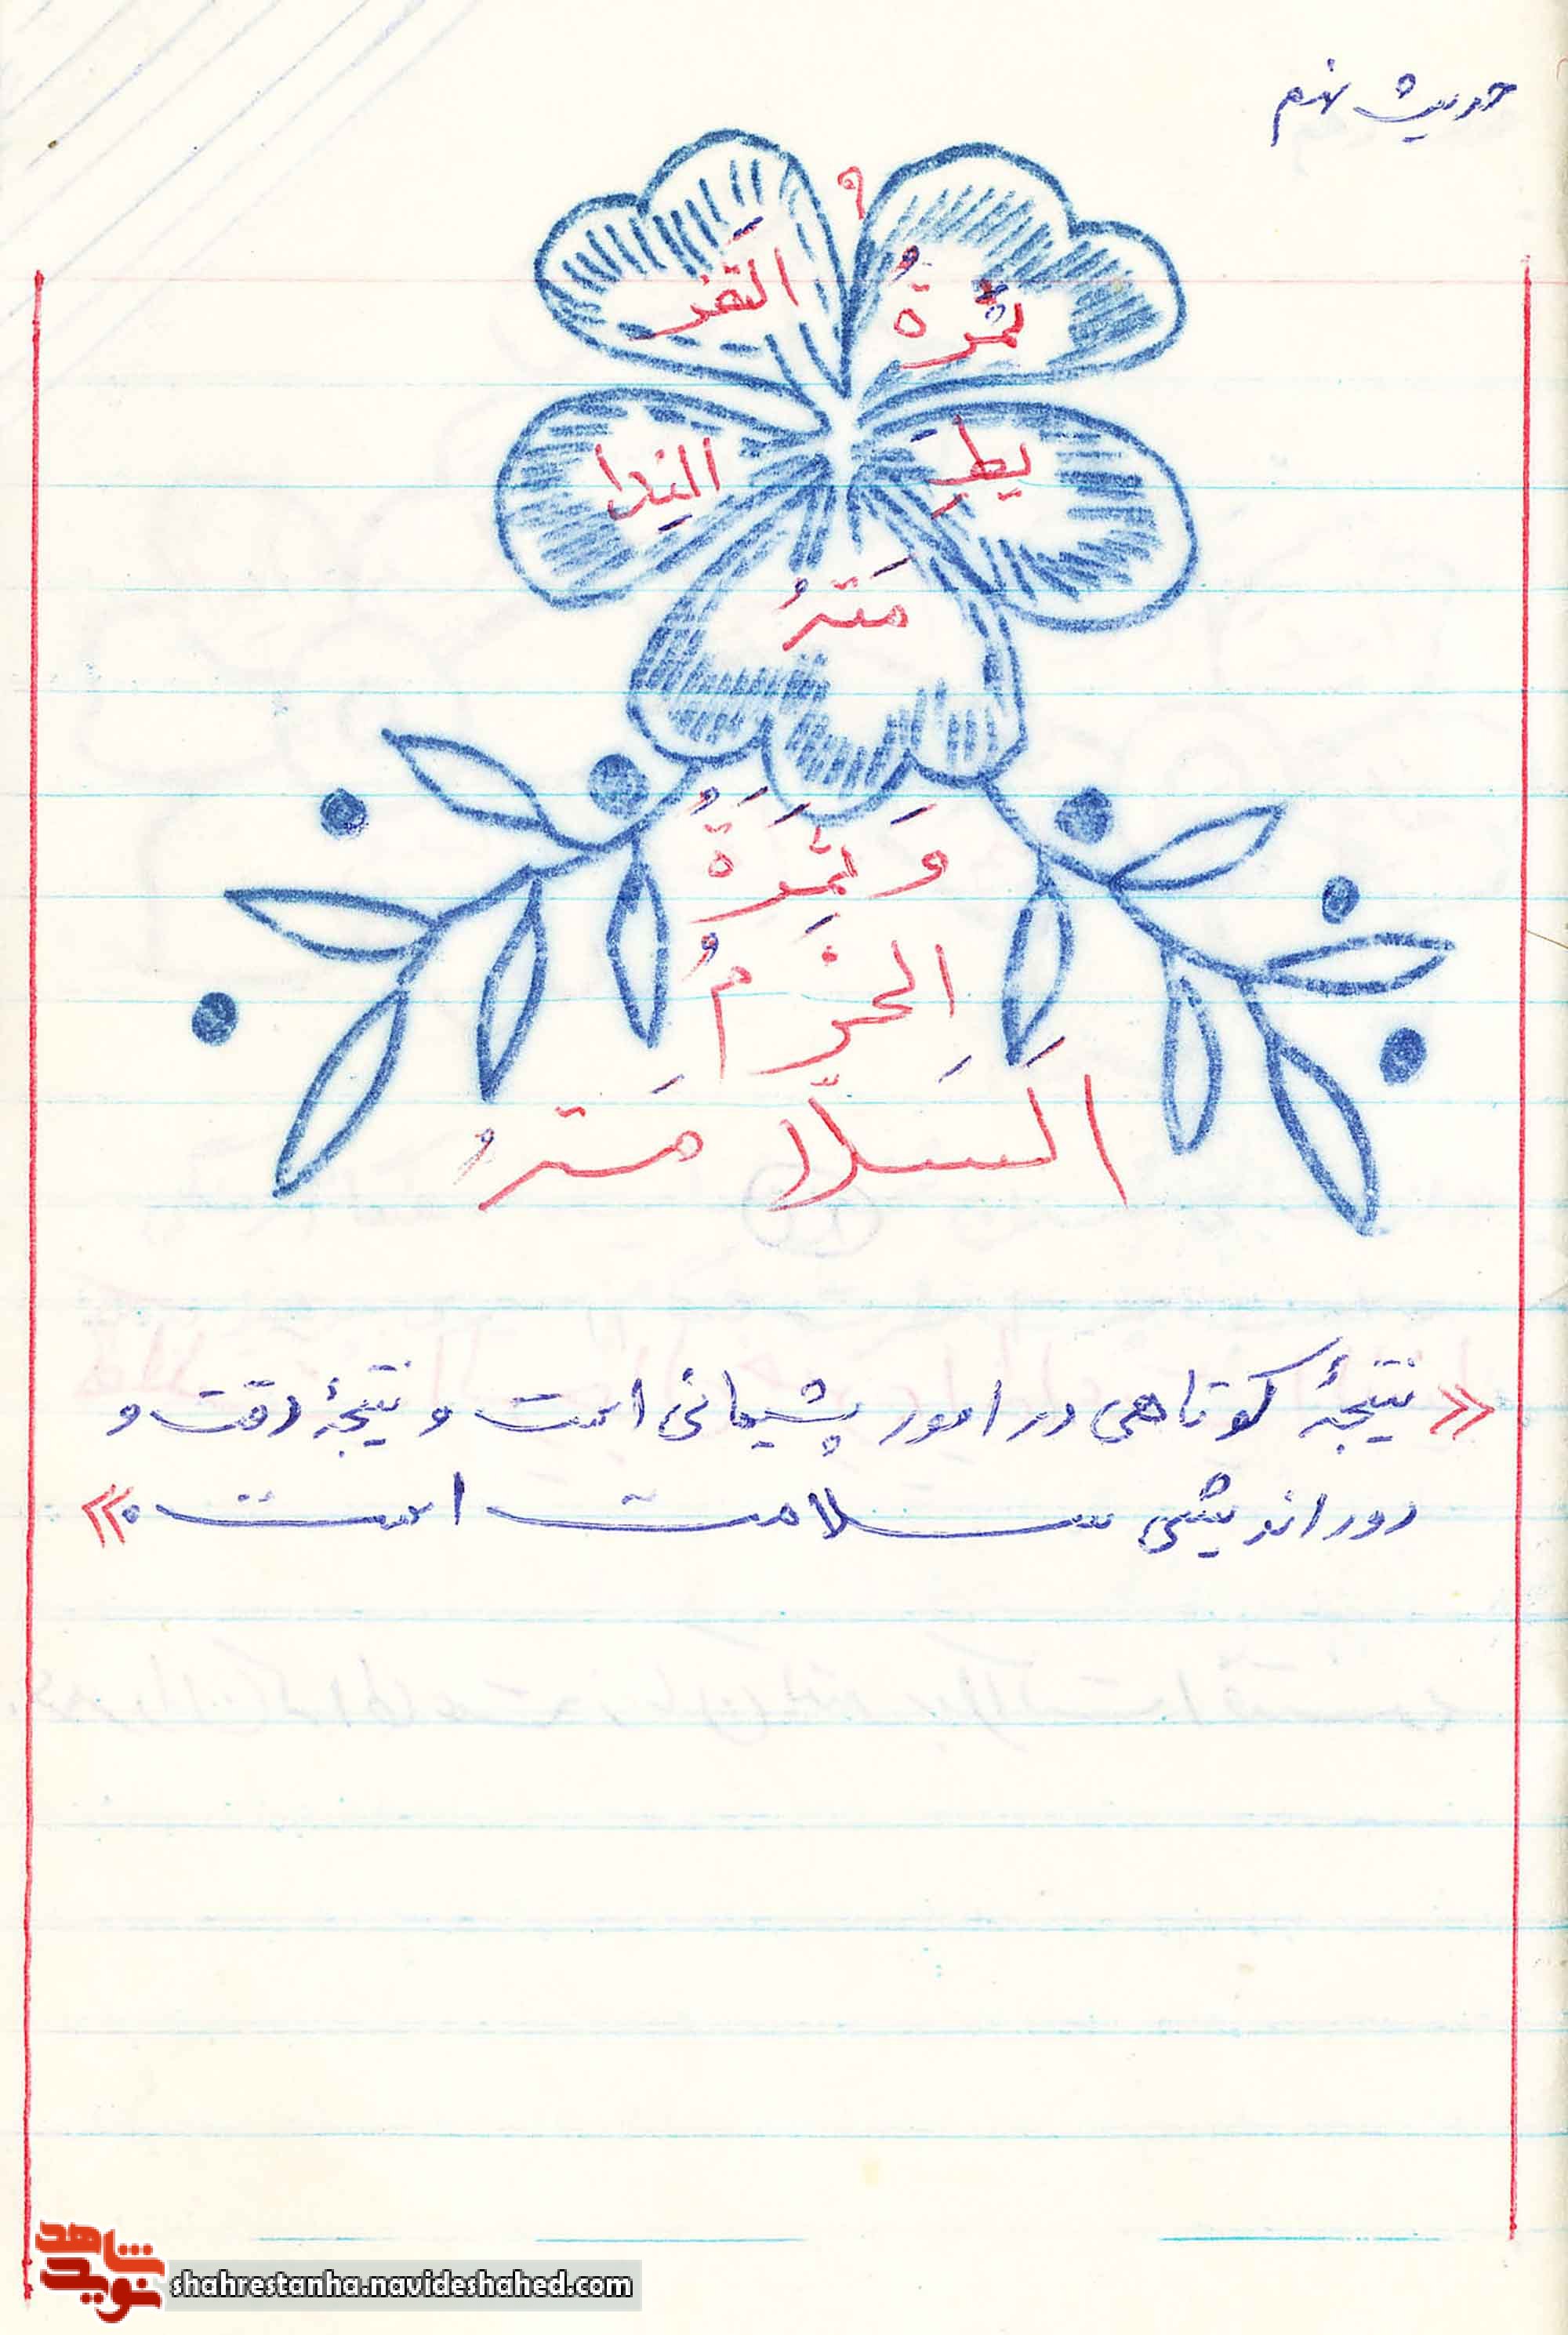 حدیث نهم
۹
ثمرةُ التَفر
یطِ الندا
مَتهُ
وَ ثَمِرَةُ
الحَزمُ
اَلسَلّا مَتهُ
«نتیجهٔ کوتاهی در امور پشیمانی است و نتیجهٔ دقت و
دوراندیشی سلامت است.»
شاهد
نوید
shahrestanha.navideshahed.com